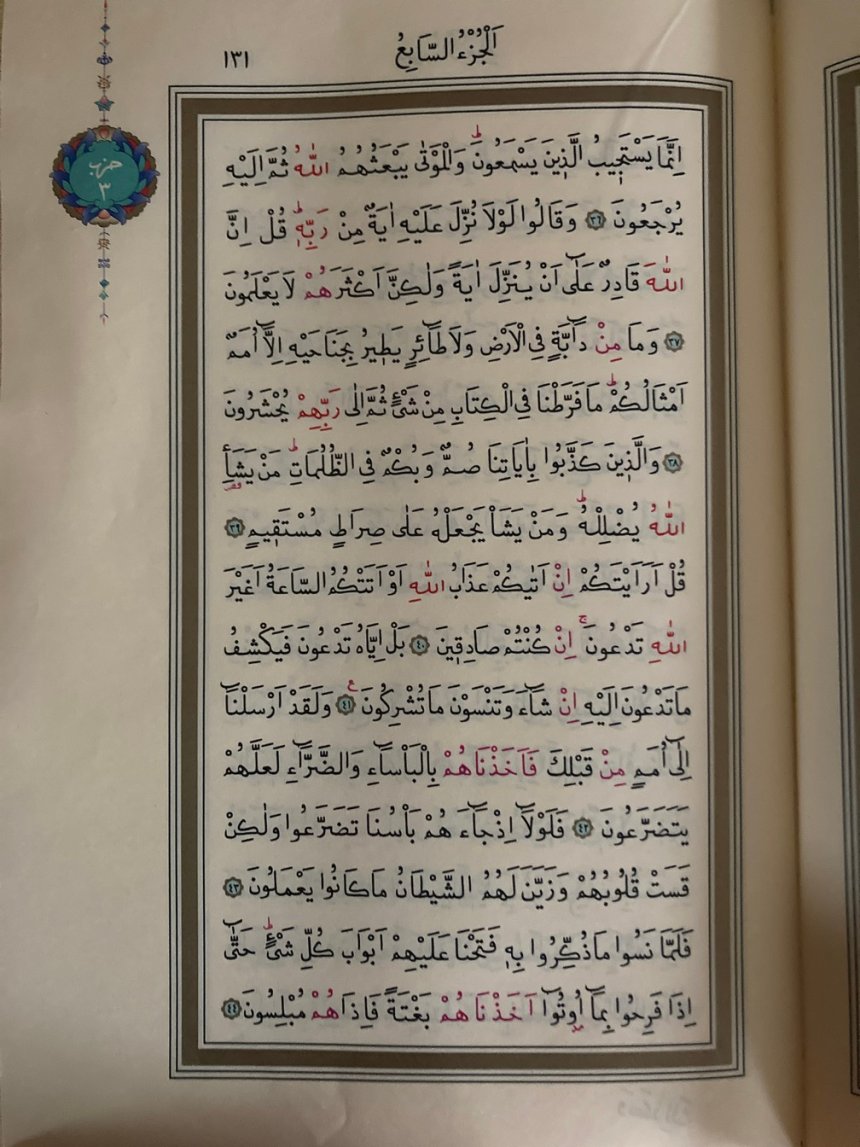 ١٣١
اَلْجُزْءُ السَّابِعُ
حزب
٣
اِنَّمَا يَسْتَجٖيبُ الَّذٖينَ يَسْمَعُونَؕ وَالْمَوْتٰى يَبْعَثُهُمُ اللّٰهُ ثُمَّ اِلَيْهِ
يُرْجَعُونَ ﴿٣٦﴾ وَقَالُوا لَوْلَا نُزِّلَ عَلَيْهِ اٰيَةٌ مِنْ رَبِّهٖؕ قُلْ اِنَّ
اللّٰهَ قَادِرٌ عَلٰٓى اَنْ يُنَزِّلَ اٰيَةً وَلٰكِنَّ اَكْثَرَهُمْ لَا يَعْلَمُونَ
﴿٣٧﴾ وَمَا مِنْ دَٓابَّةٍ فِي الْاَرْضِ وَلَا طَٓائِرٍ يَطٖيرُ بِجَنَاحَيْهِ اِلَّٓا اُمَمٌ
اَمْثَالُكُمْؕ مَا فَرَّطْنَا فِي الْكِتَابِ مِنْ شَيْءٍ ثُمَّ اِلٰى رَبِّهِمْ يُحْشَرُونَ
﴿٣٨﴾ وَالَّذٖينَ كَذَّبُوا بِاٰيَاتِنَا صُمٌّ وَبُكْمٌ فِي الظُّلُمَاتِؕ مَنْ يَشَأِ
اللّٰهُ يُضْلِلْهُؕ وَمَنْ يَشَأْ يَجْعَلْهُ عَلٰى صِرَاطٍ مُسْتَقٖيمٍ ﴿٣٩﴾
قُلْ اَرَاَيْتَكُمْ اِنْ اَتٰيكُمْ عَذَابُ اللّٰهِ اَوْ اَتَتْكُمُ السَّاعَةُ اَغَيْرَ
اللّٰهِ تَدْعُونَۚ اِنْ كُنْتُمْ صَادِقٖينَ ﴿٤٠﴾ بَلْ اِيَّاهُ تَدْعُونَ فَيَكْشِفُ
مَا تَدْعُونَ اِلَيْهِ اِنْ شَٓاءَ وَتَنْسَوْنَ مَا تُشْرِكُونَ ﴿٤١﴾ ع وَلَقَدْ اَرْسَلْنَٓا
اِلٰٓى اُمَمٍ مِنْ قَبْلِكَ فَاَخَذْنَاهُمْ بِالْبَأْسَٓاءِ وَالضَّرَّٓاءِ لَعَلَّهُمْ
يَتَضَرَّعُونَ ﴿٤٢﴾ فَلَوْلَٓا اِذْ جَٓاءَهُمْ بَأْسُنَا تَضَرَّعُوا وَلٰكِنْ
قَسَتْ قُلُوبُهُمْ وَزَيَّنَ لَهُمُ الشَّيْطَانُ مَا كَانُوا يَعْمَلُونَ ﴿٤٣﴾
فَلَمَّا نَسُوا مَا ذُكِّرُوا بِهٖ فَتَحْنَا عَلَيْهِمْ اَبْوَابَ كُلِّ شَيْءٍؕ حَتّٰٓى
اِذَا فَرِحُوا بِمَٓا اُو۫تُٓوا اَخَذْنَاهُمْ بَغْتَةً فَاِذَا هُمْ مُبْلِسُونَ ﴿٤٤﴾